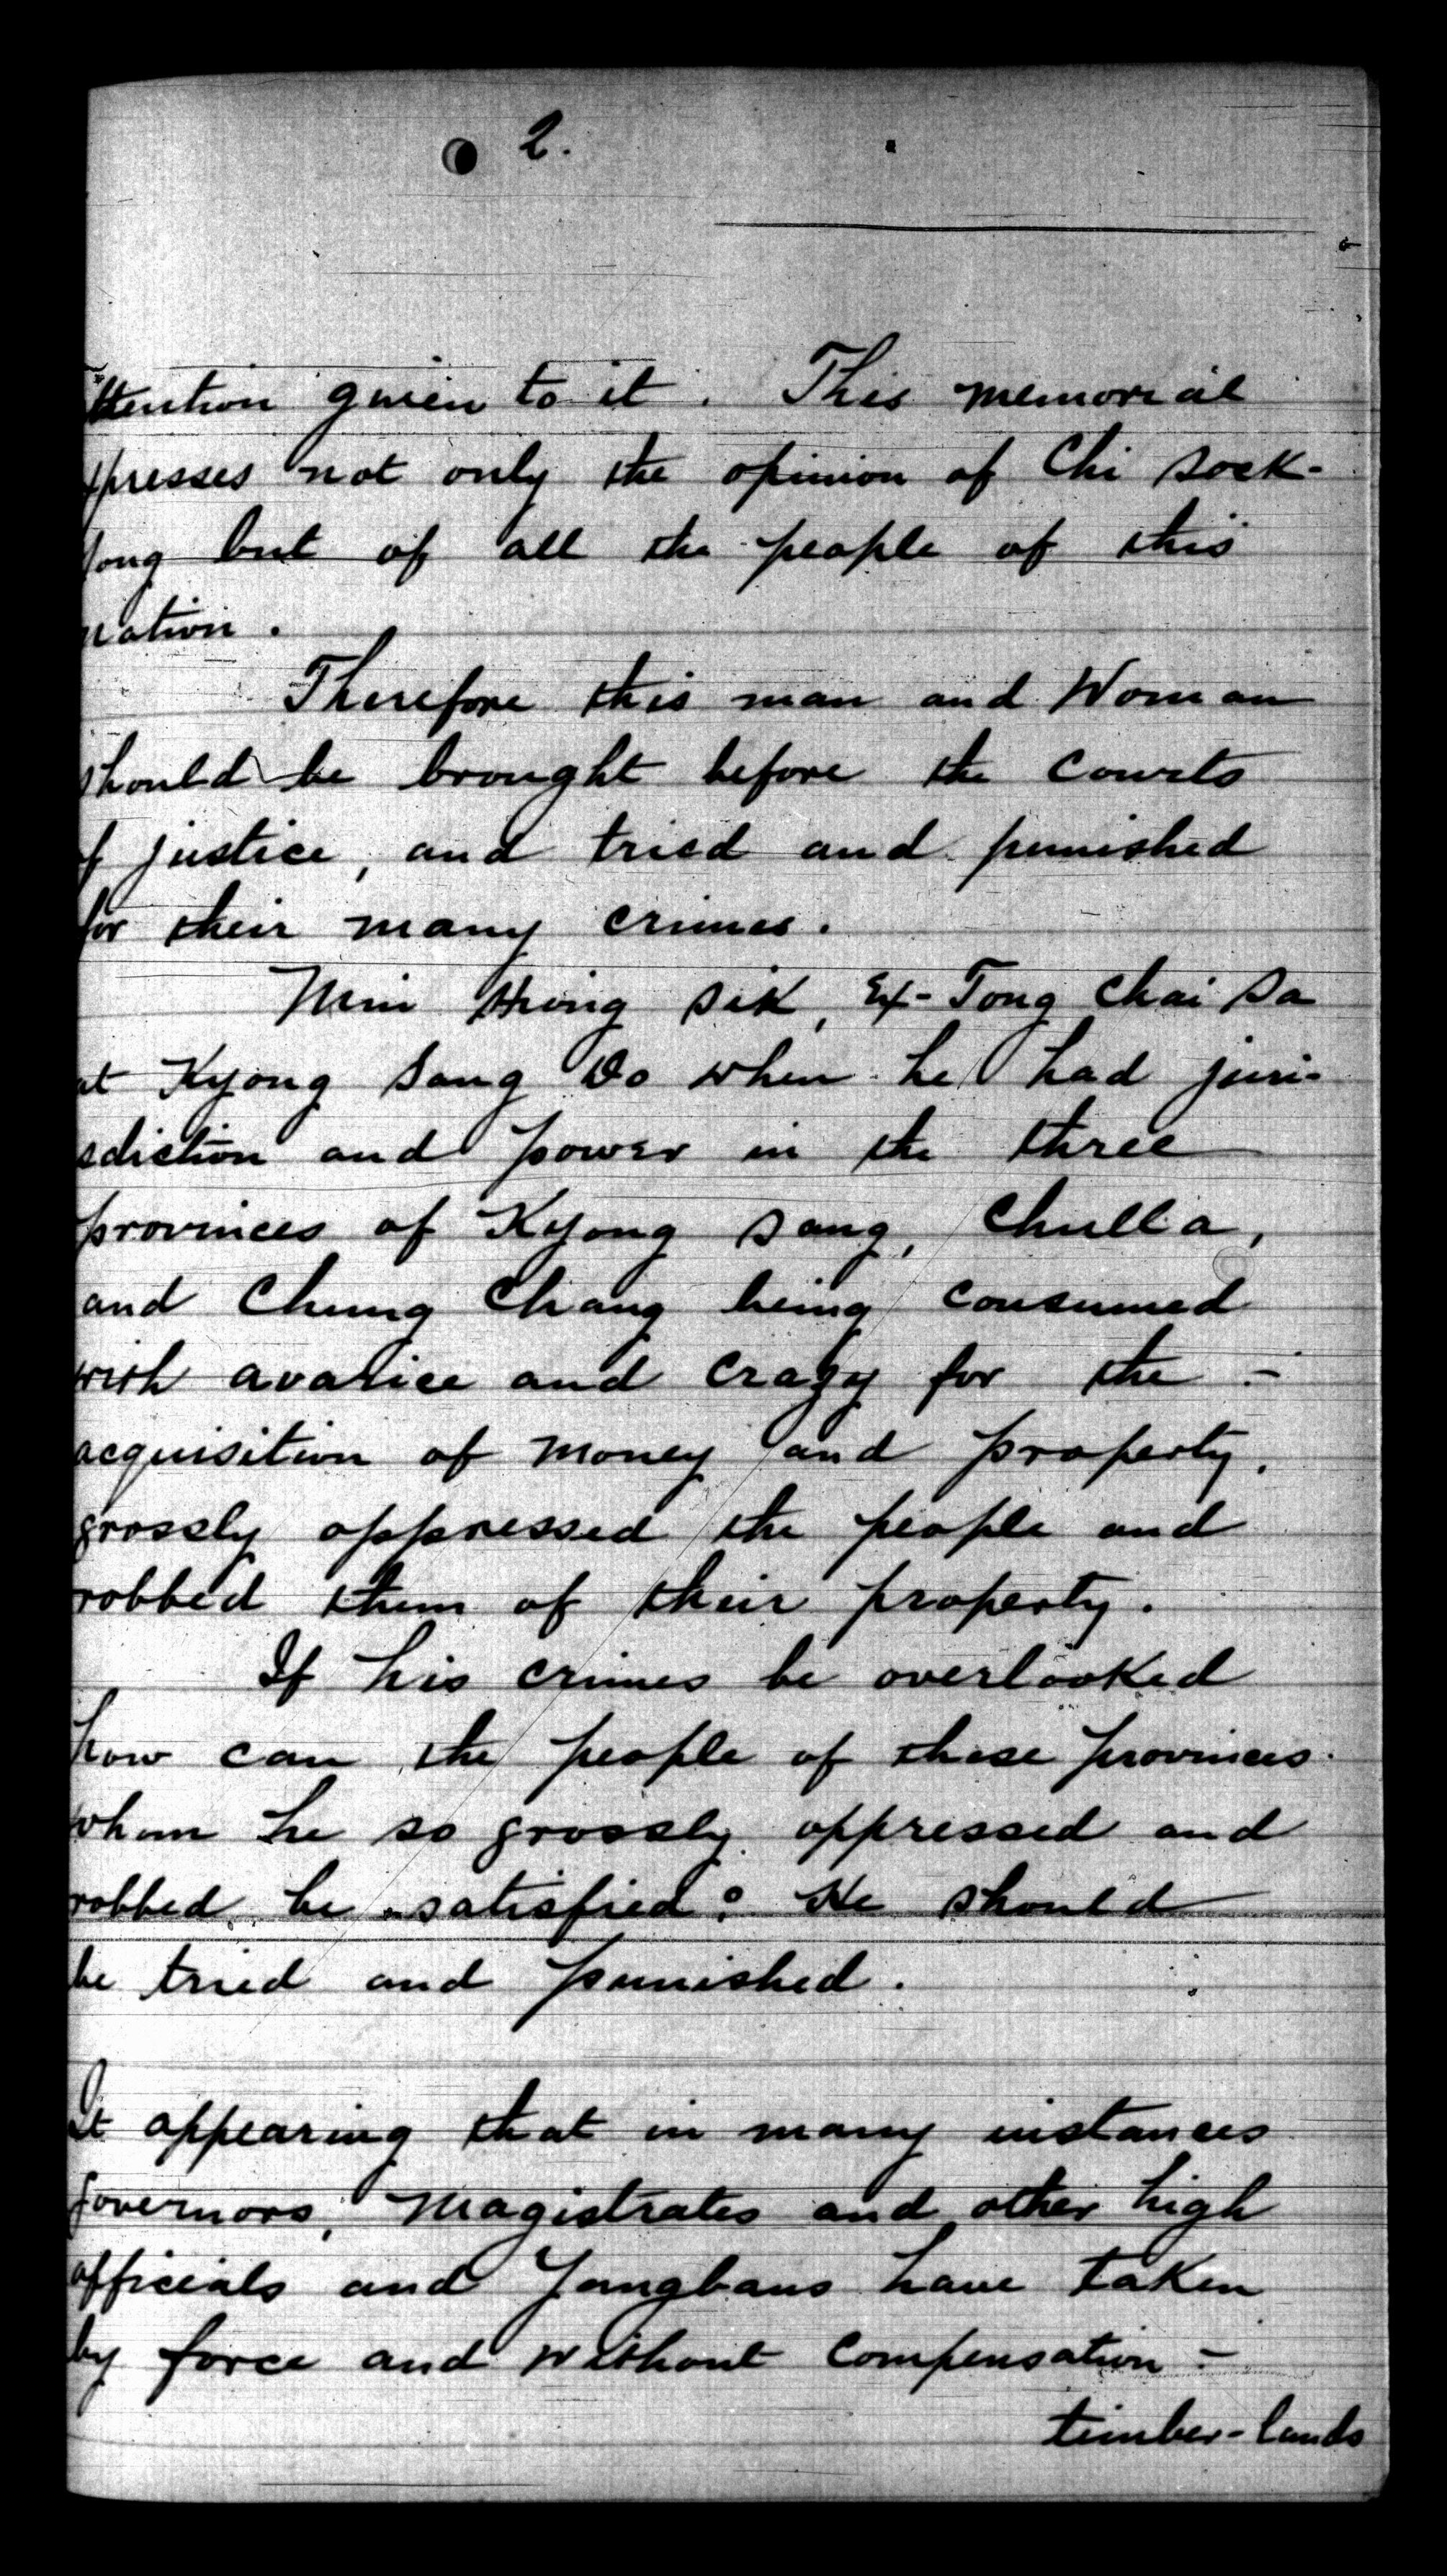 2.
ttention given to it. This memorial
xpresses not only the opinion of Chi Sock-
Yong but of all the people of this
nation.
Therefore this man and Woman
should be brought before the Courts
of justice, and tried and punished
for their many crimes.
Min Hiong Sik, Ex-Tong Chai Sa
at Kyong Sang Do when he had juri-
sdiction and power in the three
provinces of Kyong Sang, Chulla,
and Chung Chang being consumed
with avarice and crazy for the -
acquisition of money and property,
grossly oppressed the people and
robbed them of their property.
If his crimes be overlooked
how can the people of these provinces
whom he so grossly oppressed and
robbed be satisfied? He should
be tried and punished.
It appearing that in many instances
Governors, Magistrates and other high
officials and Yangbans have taken
by force and without compensation -
timber-lands